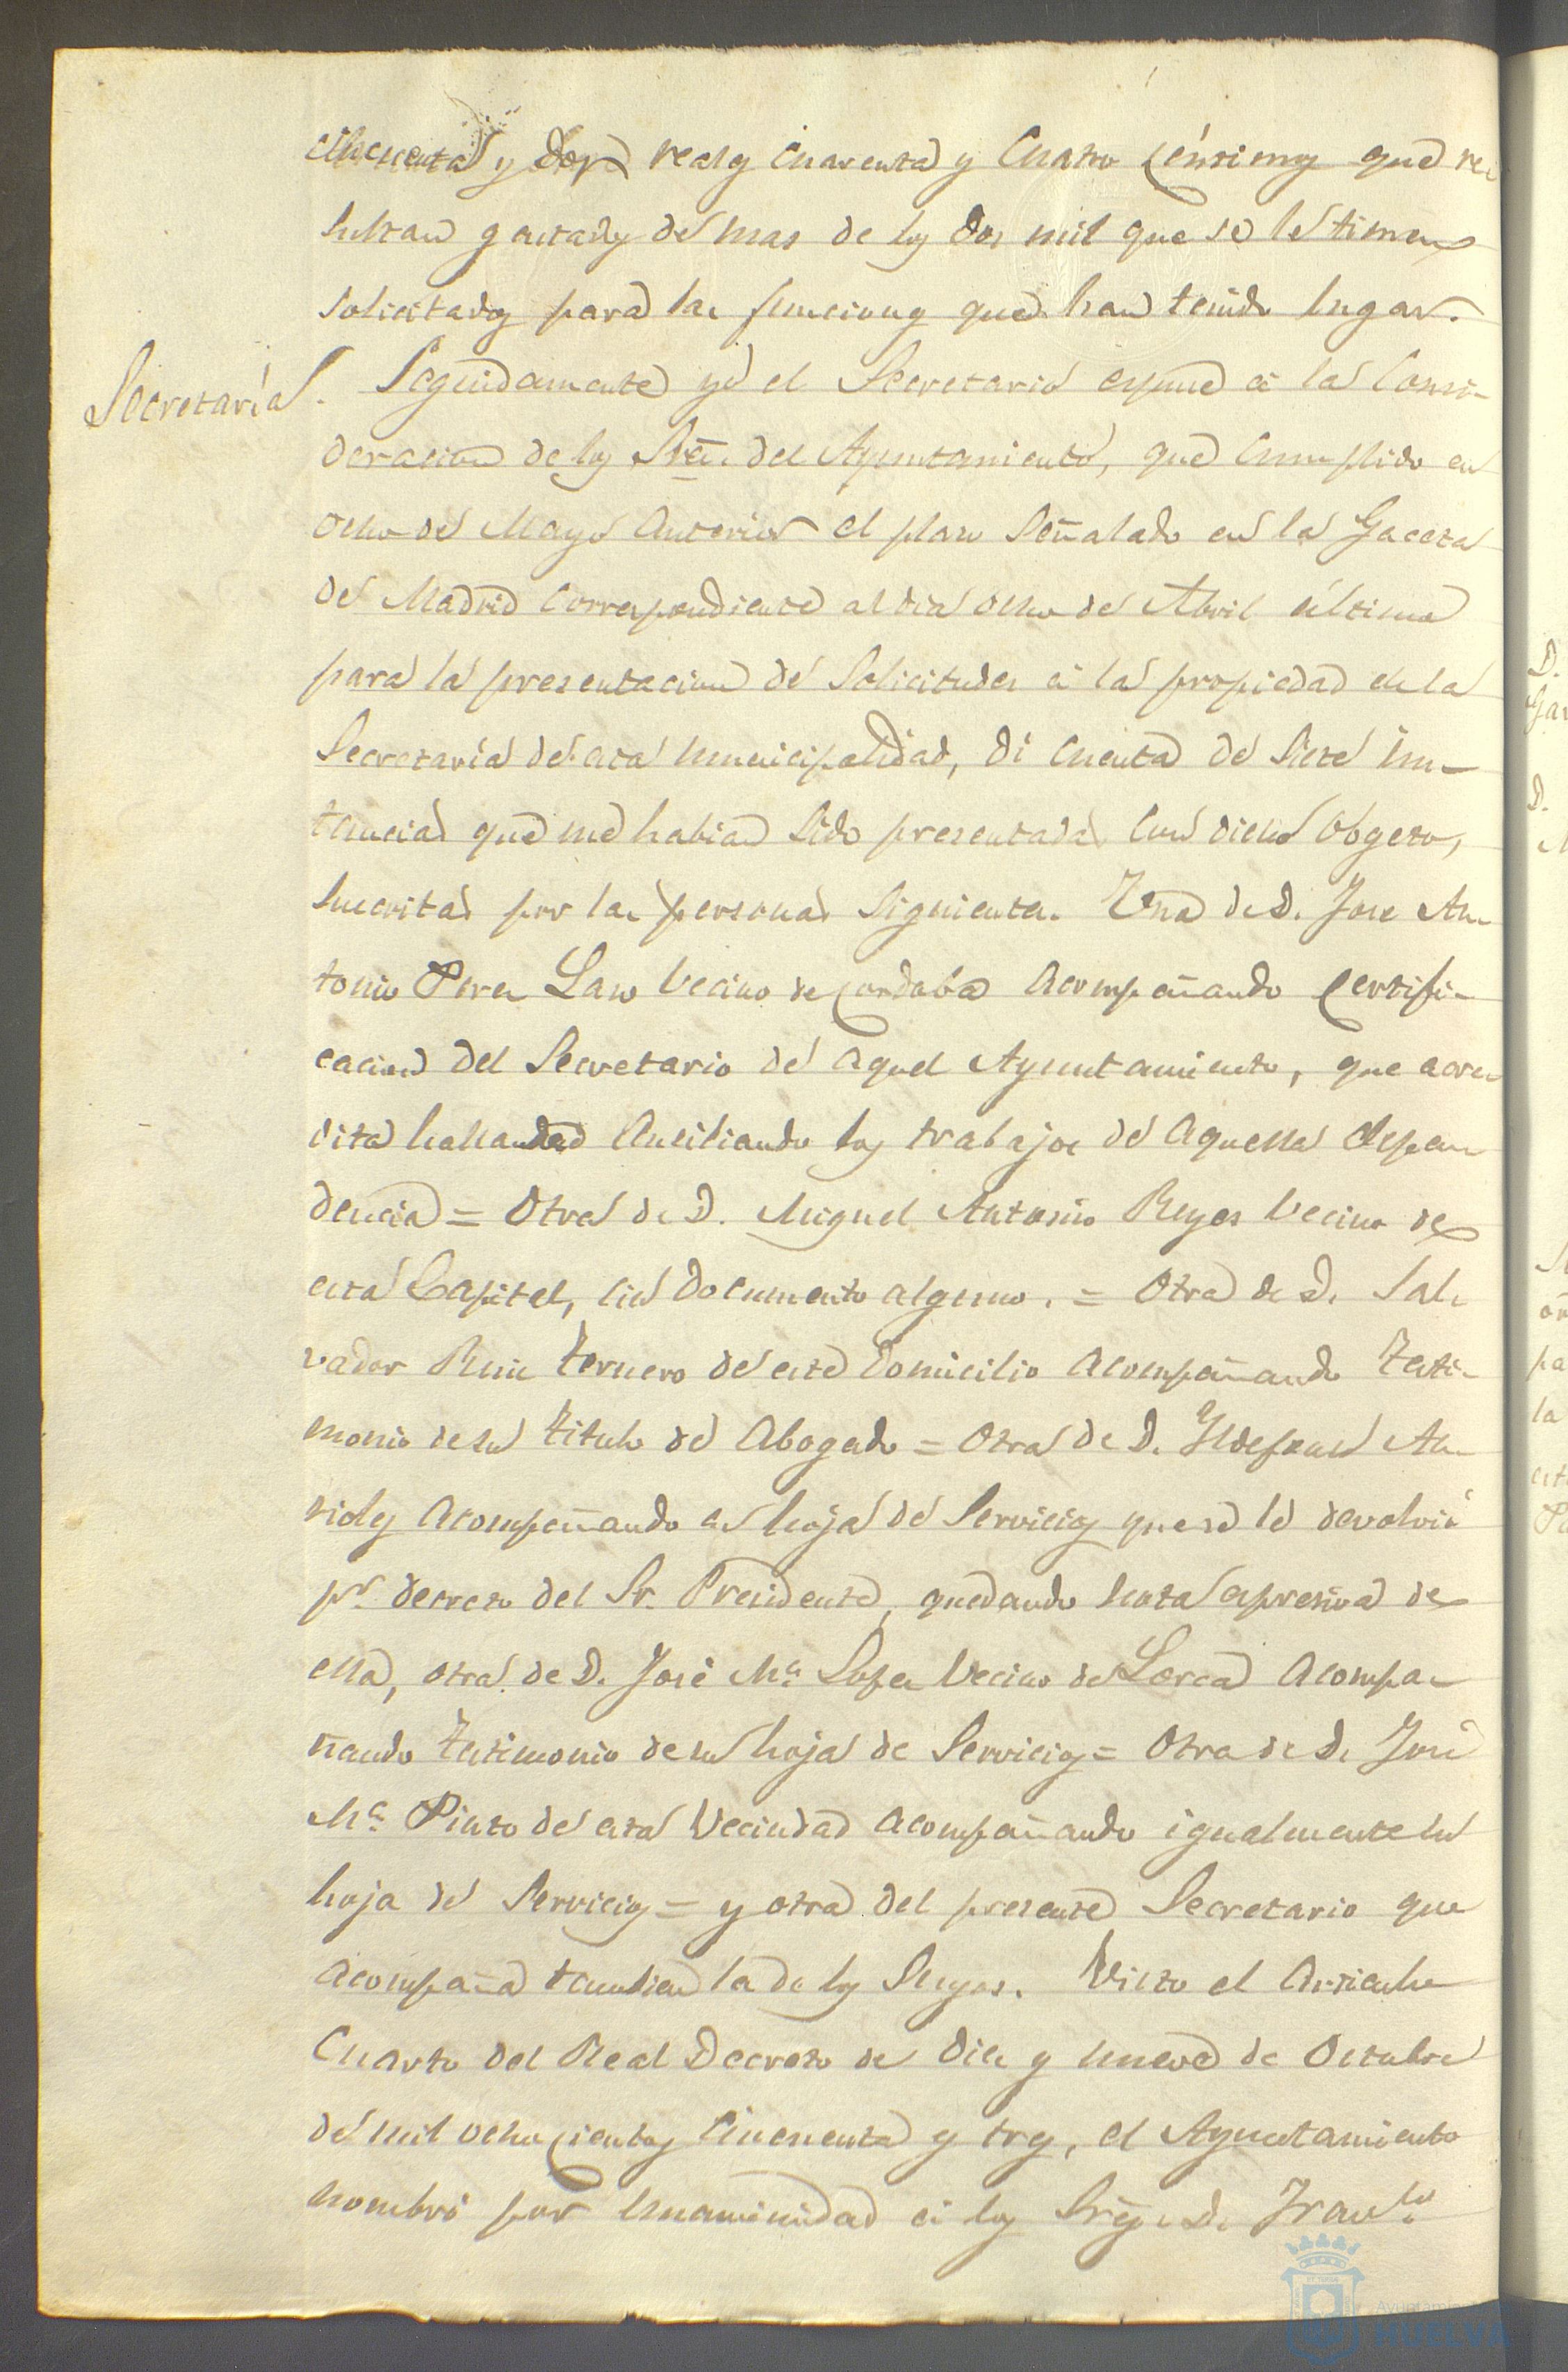 cincuenta y dos reales cuarenta y cuatro céntimos que re-
sultan gastados de mas de los dos mil que se le timen
solicitados para las funciones que han tenido lugar.
Secretaría. Seguidamente yo el Secretario espuse á la consi-
deracion de los Sres. del Ayuntamiento, que cumplido en
ocho de Mayo anterior el plazo señalado en la Gaceta
de Madrid correspondiente al dia ocho de Abril último
para la presentacion de solicitudes á la propiedad de la
Secretaría de esta municipalidad, di cuenta de siete ins-
tancias que me habian sido presentadas con dicho obgeto,
suscritas por las personas siguientes. Una de D. Jose An-
tonio Perez Laso vecino de Cordoba acompañando certifi-
cacion del Secretario de aquel Ayuntamiento, que acre-
dita hallandose ausiliando los trabajos de aquella depen-
dencia = Otra de D. Miguel Antonio Reyes vecino de
esta Capital, sin documento alguno. = Otra de D. Sal-
vador Ruiz Ternero de este domicilio acompañando testi-
monio de su titulo de Abogado = Otra de D. Yldefonso
acompañando su hoja de servicios que se le devolvió
pr. decreto del Sr. Presidente, quedando nota espresiva de
ella, otra de D. José Ma. Lopez vecino de Lorca acompa-
ñando testimonio de su hoja de servicios = Otra de D. José
Ma. Pinto de esta vecindad acompañando igualmente su
hoja de servicios = y otra del presente Secretario que
acompaña tambien la de los suyos. Visto el articulo
cuarto del Real Decreto de diez y nueve de Octubre
de mil ochocientos cincuenta y tres, el Ayuntamiento
nombró por unanimidad á los Sres. D. Franco.
Ayuntamiento
HUELVA